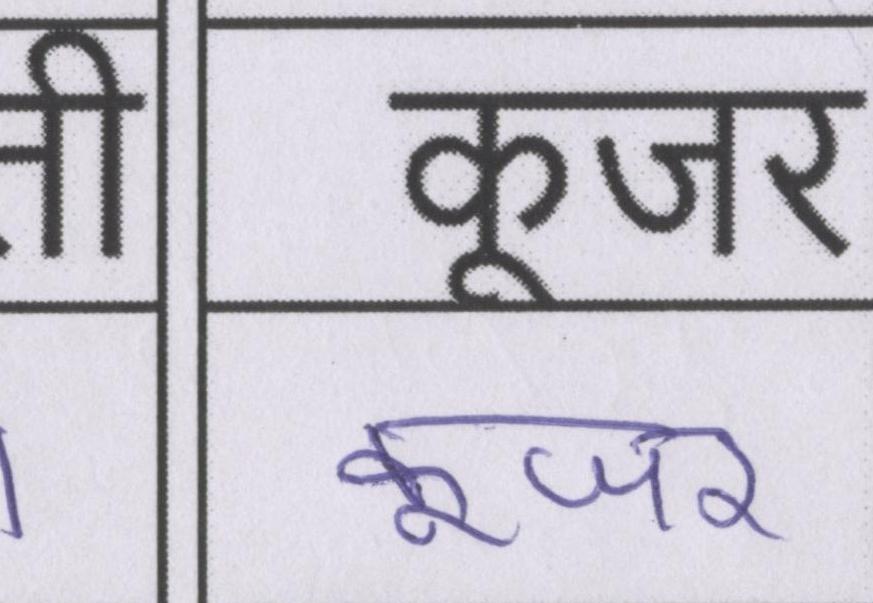 कूजर
कूजर